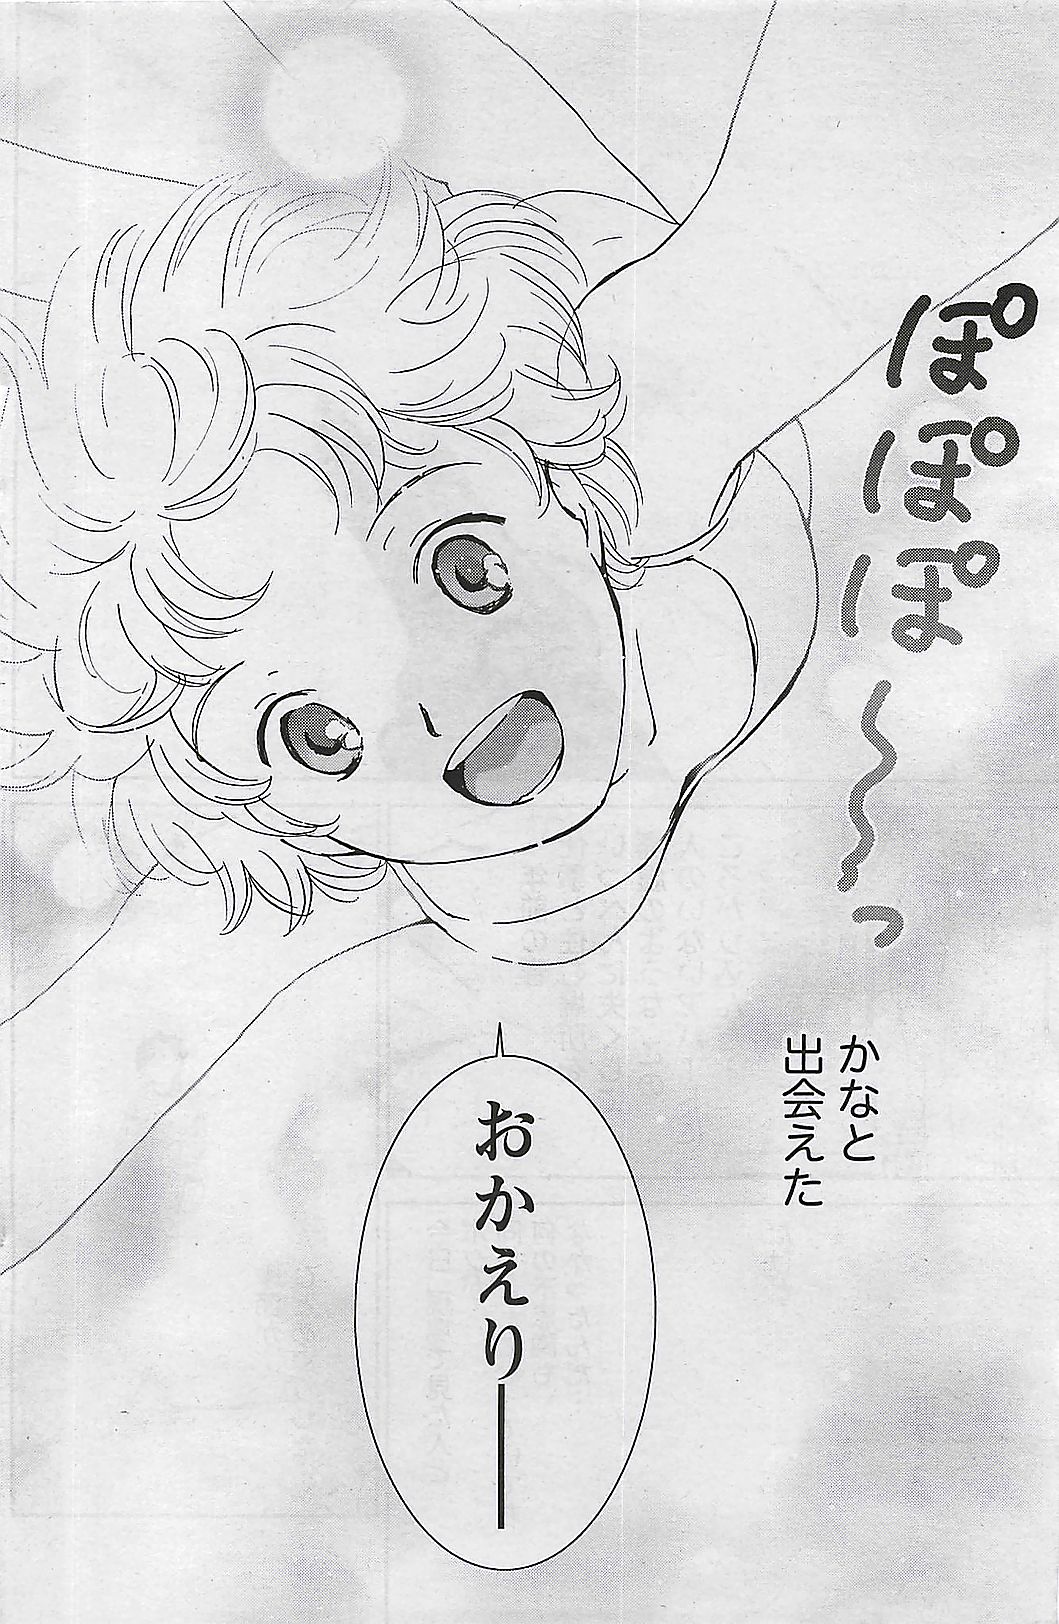 ぽぽぽ〜〜っ
かなと
出会えた
おかえり――